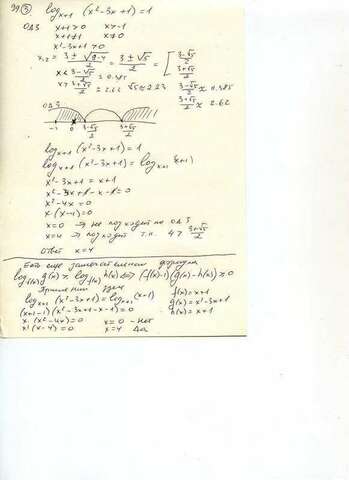 39 ③ log_{x+1} (x²-3x+1)=1
ОДЗ x+1>0 x>-1
x+1≠1 x≠0
x²-3x+1>0
x_{1,2} = (3±√(9-4))/2 = (3±√5)/2 = [ (3-√5)/2
(3+√5)/2
x<(3-√5)/2 ≈ 0.385 (3-√5)/2 ≈ 0.385
x>(3+√5)/2 ≈ 2.62 √5≈2.23 (3+√5)/2 ≈ 2.62
ОДЗ
-1 0 (3-√5)/2 (3+√5)/2
log_{x+1} (x²-3x+1)=1
log_{x+1} (x²-3x+1) = log_{x+1} (x+1)
x²-3x+1 = x+1
x²-3x+1-x-1=0
x²-4x=0
x(x-4)=0
x=0 → не подходит по ОДЗ
x=4 → подходит т.к. 4 > (3+√5)/2
Ответ x=4
Есть еще замечательная формула
log_{f(x)} g(x) ≥ log_{f(x)} h(x) ⇔ (f(x)-1)(g(x)-h(x)) ≥ 0
Применим здесь f(x)=x+1
log_{x+1} (x²-3x+1)=log_{x+1} (x+1) g(x)=x²-3x+1
(x+1-1)(x²-3x+1-x-1)=0 h(x)=x+1
x·(x²-4x)=0 x=0 - Нет
x²(x-4)=0 x=4 Да